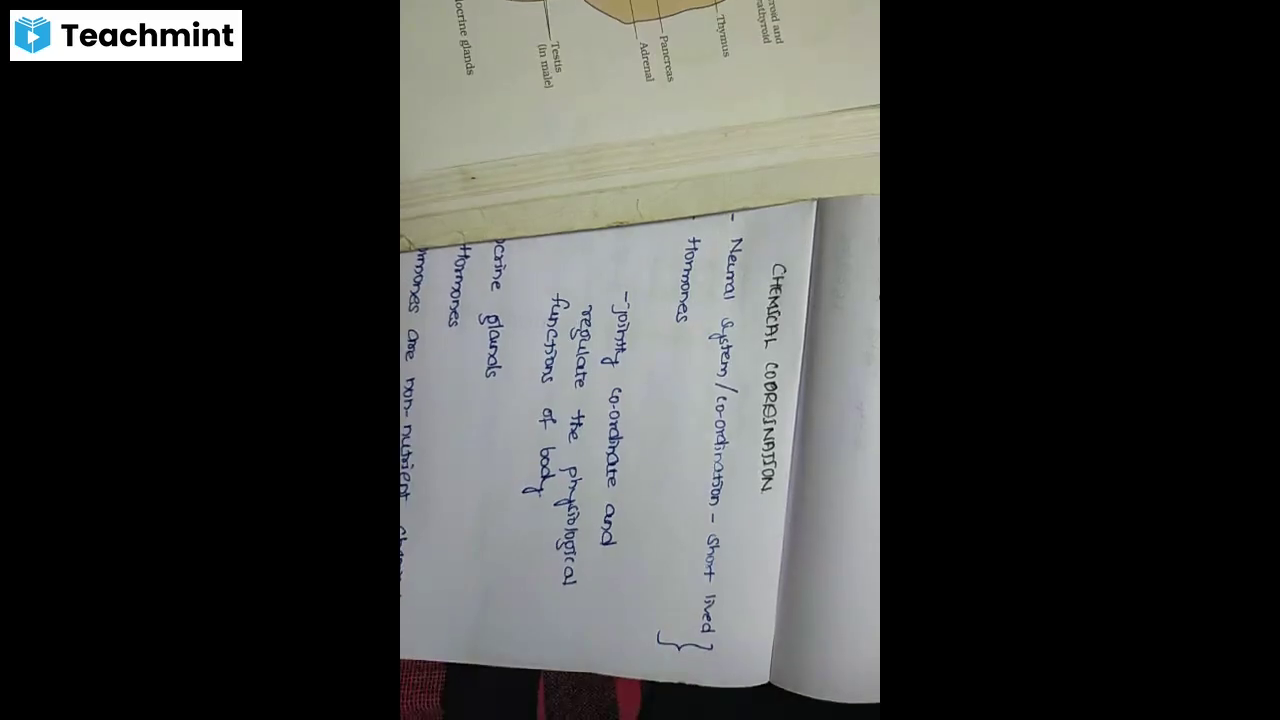 Teachmint
roid and
athyroid
Thymus
Pancreas
Adrenal
Testis
(in male)
docrine glands
CHEMICAL COORDINATION
- Neural system/co-ordination - short lived }
- Hormones
- jointly co-ordinate and
regulate the physiological
functions of body
ocrine glands
Hormones
rmones are non-nutrient